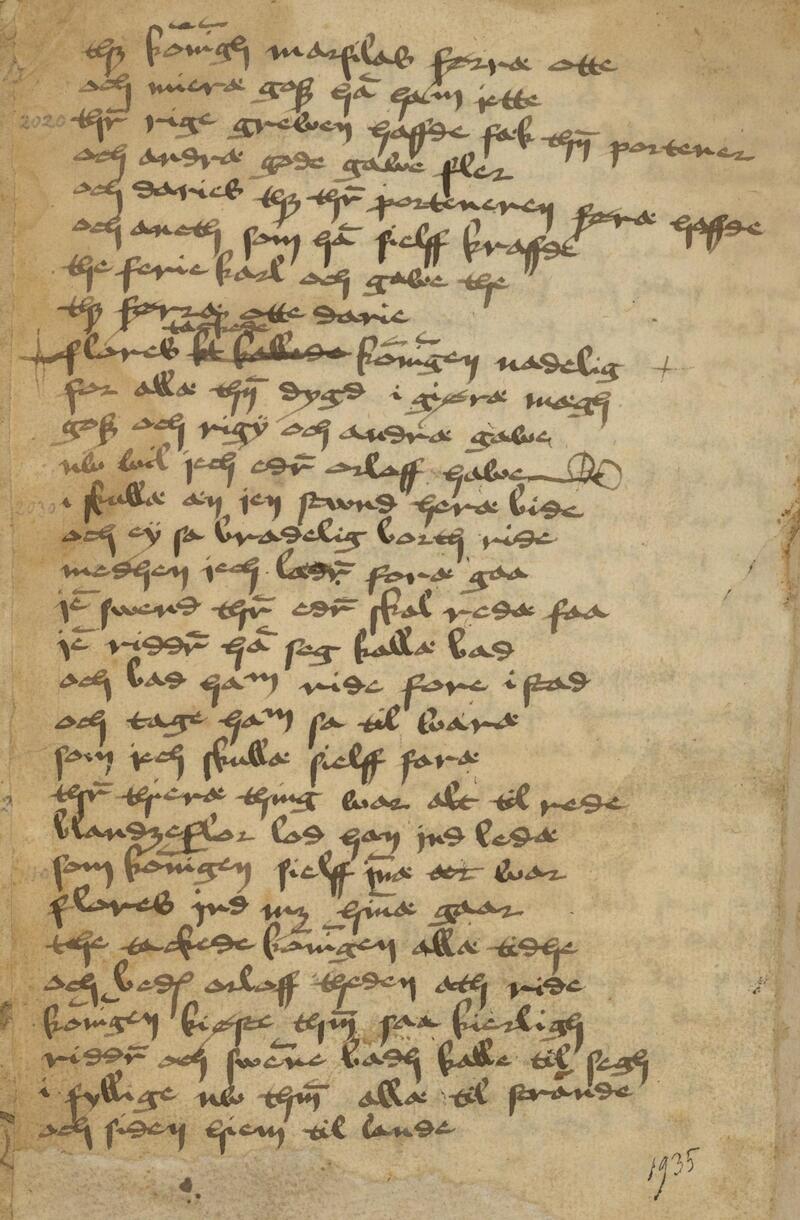 thꝫ koni̅gh marsilas førræ otte
och mieræ gosß ha̅ ham jette
2020 thr̅ rige grewen haffde fæk thn̅ portener
och andræ gode gawe fler
och daries thꝫ thr̅ porteneren føræ haffde
och aneth som ha̅ sielff kraffde
the ferie karl och gawe the
thꝫ førræ otte darie
tackede
flores kallede koni̅gen nadelig
for allæ thn̅ dygd i giøræ mægh
gosß och rigÿ och andræ gawe
nw wil jech edr̅ orloff hawe
i skullæ æn jen stwnd heræ bide
och eÿ sa bradelig borth ride
medhen jech lædr̅ foræ gaa
je̅ swend thr̅ edr̅ skal redæ faa
je̅ riddr̅ ha̅ seg kallæ bad
och bad ham ride fore i stad
och tage ham sa til waræ
som jech skullæ sielff faræ
thr̅ thieræ thing war alt til rede
blandzeflor lod han ind ledæ
som koni̅gen sielff in̅æ æt war
flores ind mꝫ hin̅æ gaar
the tackede koni̅gen allæ tidhe
och bedes orloff theden ath ride
koni̅gen kiøste thm̅ saa kierligh
riddr̅ och swe̅ne badh kalle til segh
i fyllige nw thm̅ allæ til strande
och siden hiem til lande
1935